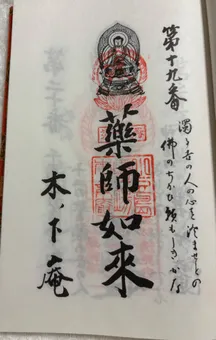 第十九番
濁り江の人の心を澄ませとの
佛のちかひ頼もしきかな
藥師如來
木ノ下庵